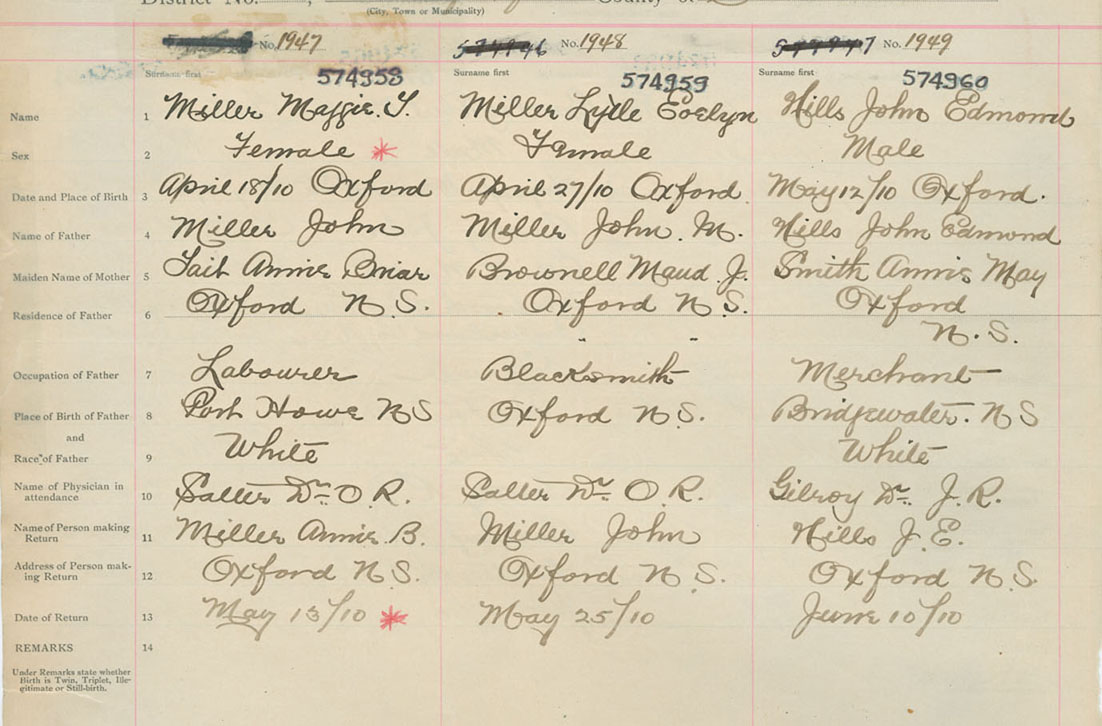 District No. , County of
(City, Town or Municipality)
No. 1947 No. 1948 No. 1949
Surname first 574958 Surname first 574959 Surname first 574960
Name 1 Miller Maggie. T. Miller Lytle Evelyn Hills John Edmond
Sex 2 Female * Female Male
Date and Place of Birth 3 April 18/10 Oxford April 27/10 Oxford May 12/10 Oxford.
Name of Father 4 Miller John Miller John. M. Hills John Edmond
Maiden Name of Mother 5 Tait Annie Briar Brownell Maud J. Smith Annie May
Residence of Father 6 Oxford N.S. Oxford N S. Oxford
N.S.
Occupation of Father 7 Labourer Blacksmith Merchant
Place of Birth of Father 8 Port Howe N S Oxford N S. Bridgewater. N S
and
Race of Father 9 White White
Name of Physician in
attendance 10 Salter Dr. O R. Salter Dr. O R. Gilroy Dr. J. R.
Name of Person making
Return 11 Miller Annie. B. Miller John Hills J. E.
Address of Person mak-
ing Return 12 Oxford N S. Oxford N S. Oxford N S.
Date of Return 13 May 13/10 * May 25/10 June 10/10
REMARKS 14
Under Remarks state whether
Birth is Twin, Triplet, Ille-
gitimate or Still-birth.